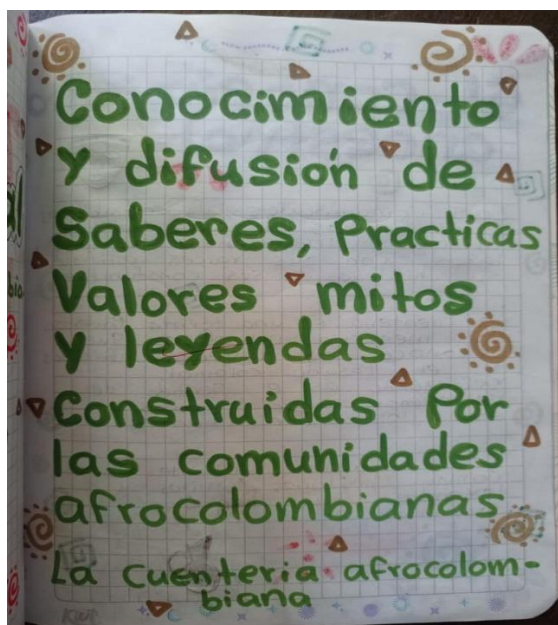 Conocimiento
y difusión de
Saberes, Practicas
Valores mitos
y leyendas
Construidas Por
las comunidades
afrocolombianas
La Cuenteria afrocolom-
biana